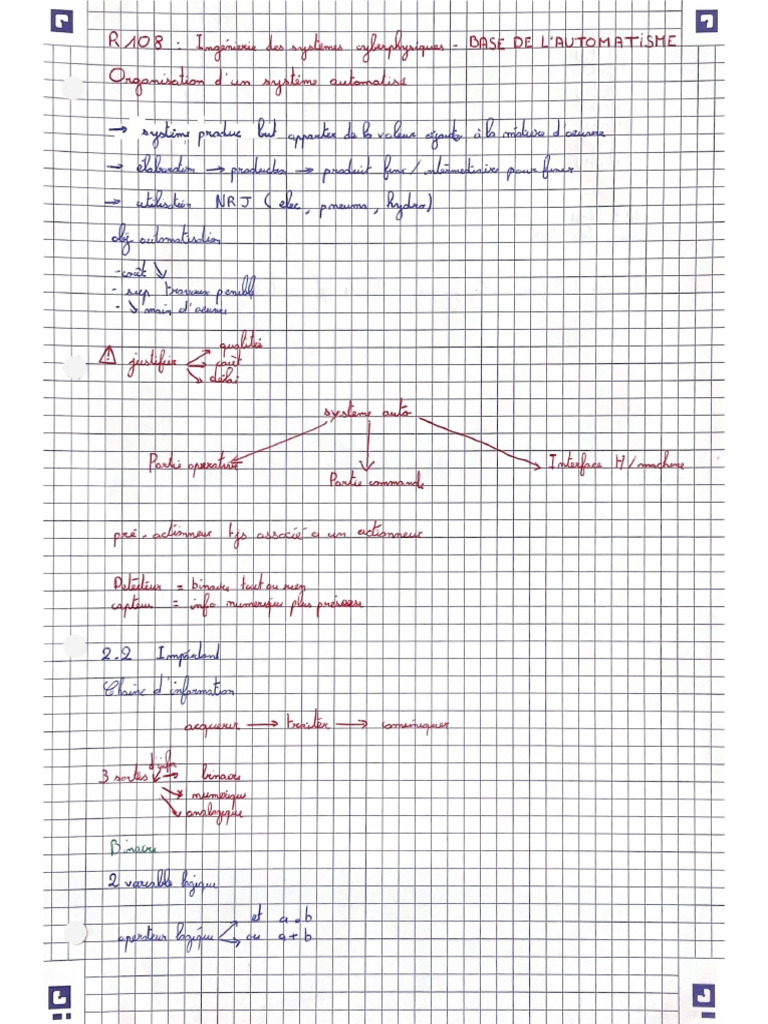 R108 : Ingénierie des systèmes cyberphysiques - BASE DE L'AUTOMATISME
Organisation d'un système automatisé
→ système produc but apporter de la valeur ajoutée à la matière d'œuvre
→ élaboration → production → produit finc / intermédiaire pour finir
→ utilisation NRJ ( elec, pneuma, hydro)
obj automatisation
- coût ↘
- sup travaux penible
- ↘ main d'œuvre
⚠ justifier → qualité
→ coût
→ délai
système auto
Partie operative
Partie commande
Interface H/machine
pré-actionneur tjs associé a un actionneur
Détécteur = binaire tout ou rien
capteur = info numerique plus précise
2.2 Important
Chaine d'information
acquerir → traiter → comuniquer
3 sortes d'info → binaire
→ numérique
→ analogique
Binaire
2 variable logique
operateur logique → et a.b
→ ou a+b